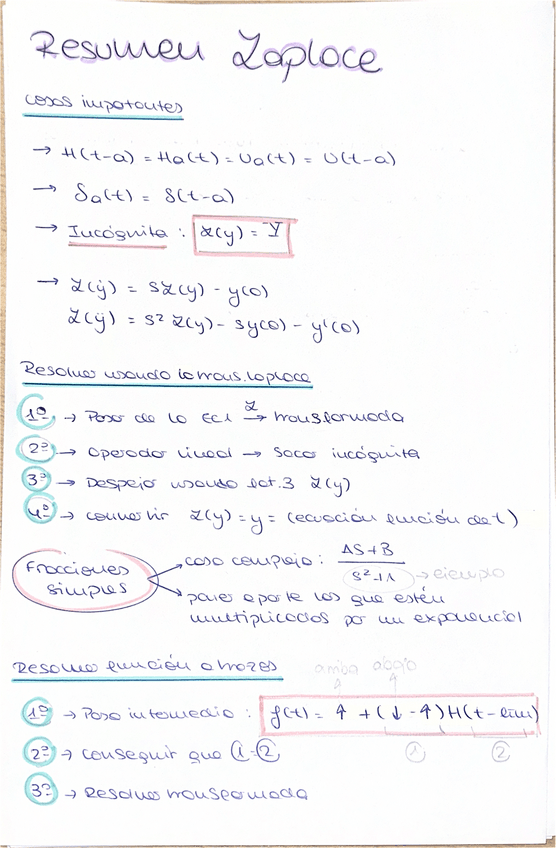 Resumen Laplace
cosas impotantes
→ H(t-a) = Ha(t) = Ua(t) = U(t-a)
→ δa(t) = δ(t-a)
→ Incógnita : ℒ(y) = Y
→ ℒ(ẏ) = Sℒ(y) - y(0)
ℒ(ÿ) = S² ℒ(y) - sy(0) - y'(0)
Resolver usando la trans. laplace
1º → Pasar de la EC1 ℒ→ transformada
2º → Operador lineal → Saco incógnita
3º → Despejo usando lat.3 ℒ(y)
4º → convertir ℒ(y) = y = (ecuación función de t)
Fracciones simples
caso complejo : AS+B / S²+1 → ejemplo
poner aparte los que estén
multiplicados por un exponencial
Resolver función a trozos
arriba abajo
1º → Paso intermedio : f(t) = ↑ + (↓ - ↑) H(t - lim)
1 2
2º → conseguir que 1=2
3º → Resolver transformada